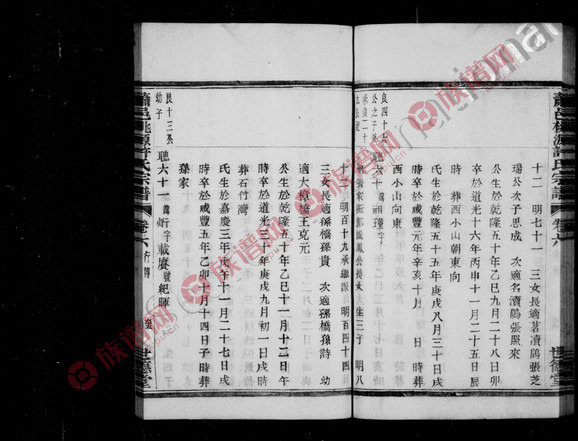 十二 明七十一 三女長適茗瀆鴟張芝
瑞公次子思成 次適名瀆鴟張照來
公生於乾隆五十年乙巳九月二十八日卯
時卒於道光十六年丙申十一月二十五日辰
時 葬西小山朝東向
氏生於乾隆五十五年庚戌八月三十日戌
時卒於咸豐元年辛亥十月 日 時葬
西小山向東
良四十五
公之子
聰六十
十一 明百十九承繼 明百四十四
三女長適孫橋孫貴 次適孫橋孫詩 幼
適大 王克元
公生於乾隆五十年乙巳十一月十二日午
時卒於道光三十年庚戌九月初一日戌時
葬石竹灣
氏生於嘉慶三年戊午十一月二十七日戌
時卒於咸豐五年乙卯十月十四日子時葬
孫家
良十三公
幼子
聰六十一 載賡號紀暉
蕭邑桃源許氏宗譜
卷六
世德堂
族谱网